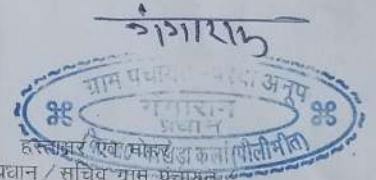 गंगाराम
ग्राम पंचायत अनूप
गंगाराम
प्रधान
कलां (पीलीभीत)
हस्ताक्षर एवं मोहर
प्रधान / सचिव ग्राम पंचायत